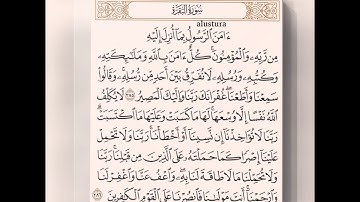 سُورَةُ البَقَرَةِ
alustura
ءَامَنَ الرَّسُولُ بِمَا أُنزِلَ إِلَيْهِ
مِن رَّبِّهِ وَالْمُؤْمِنُونَ كُلٌّ ءَامَنَ بِاللَّهِ وَمَلَائِكَتِهِ
وَكُتُبِهِ وَرُسُلِهِ لَا نُفَرِّقُ بَيْنَ أَحَدٍ مِّن رُّسُلِهِ وَقَالُوا
سَمِعْنَا وَأَطَعْنَا غُفْرَانَكَ رَبَّنَا وَإِلَيْكَ الْمَصِيرُ ٢٨٥ لَا يُكَلِّفُ
اللَّهُ نَفْسًا إِلَّا وُسْعَهَا لَهَا مَا كَسَبَتْ وَعَلَيْهَا مَا اكْتَسَبَتْ
رَبَّنَا لَا تُؤَاخِذْنَا إِن نَّسِينَا أَوْ أَخْطَأْنَا رَبَّنَا وَلَا تَحْمِلْ
عَلَيْنَا إِصْرًا كَمَا حَمَلْتَهُ عَلَى الَّذِينَ مِن قَبْلِنَا رَبَّنَا
وَلَا تُحَمِّلْنَا مَا لَا طَاقَةَ لَنَا بِهِ وَاعْفُ عَنَّا وَاغْفِرْ لَنَا
وَارْحَمْنَا أَنتَ مَوْلَانَا فَانصُرْنَا عَلَى الْقَوْمِ الْكَافِرِينَ ٢٨٦